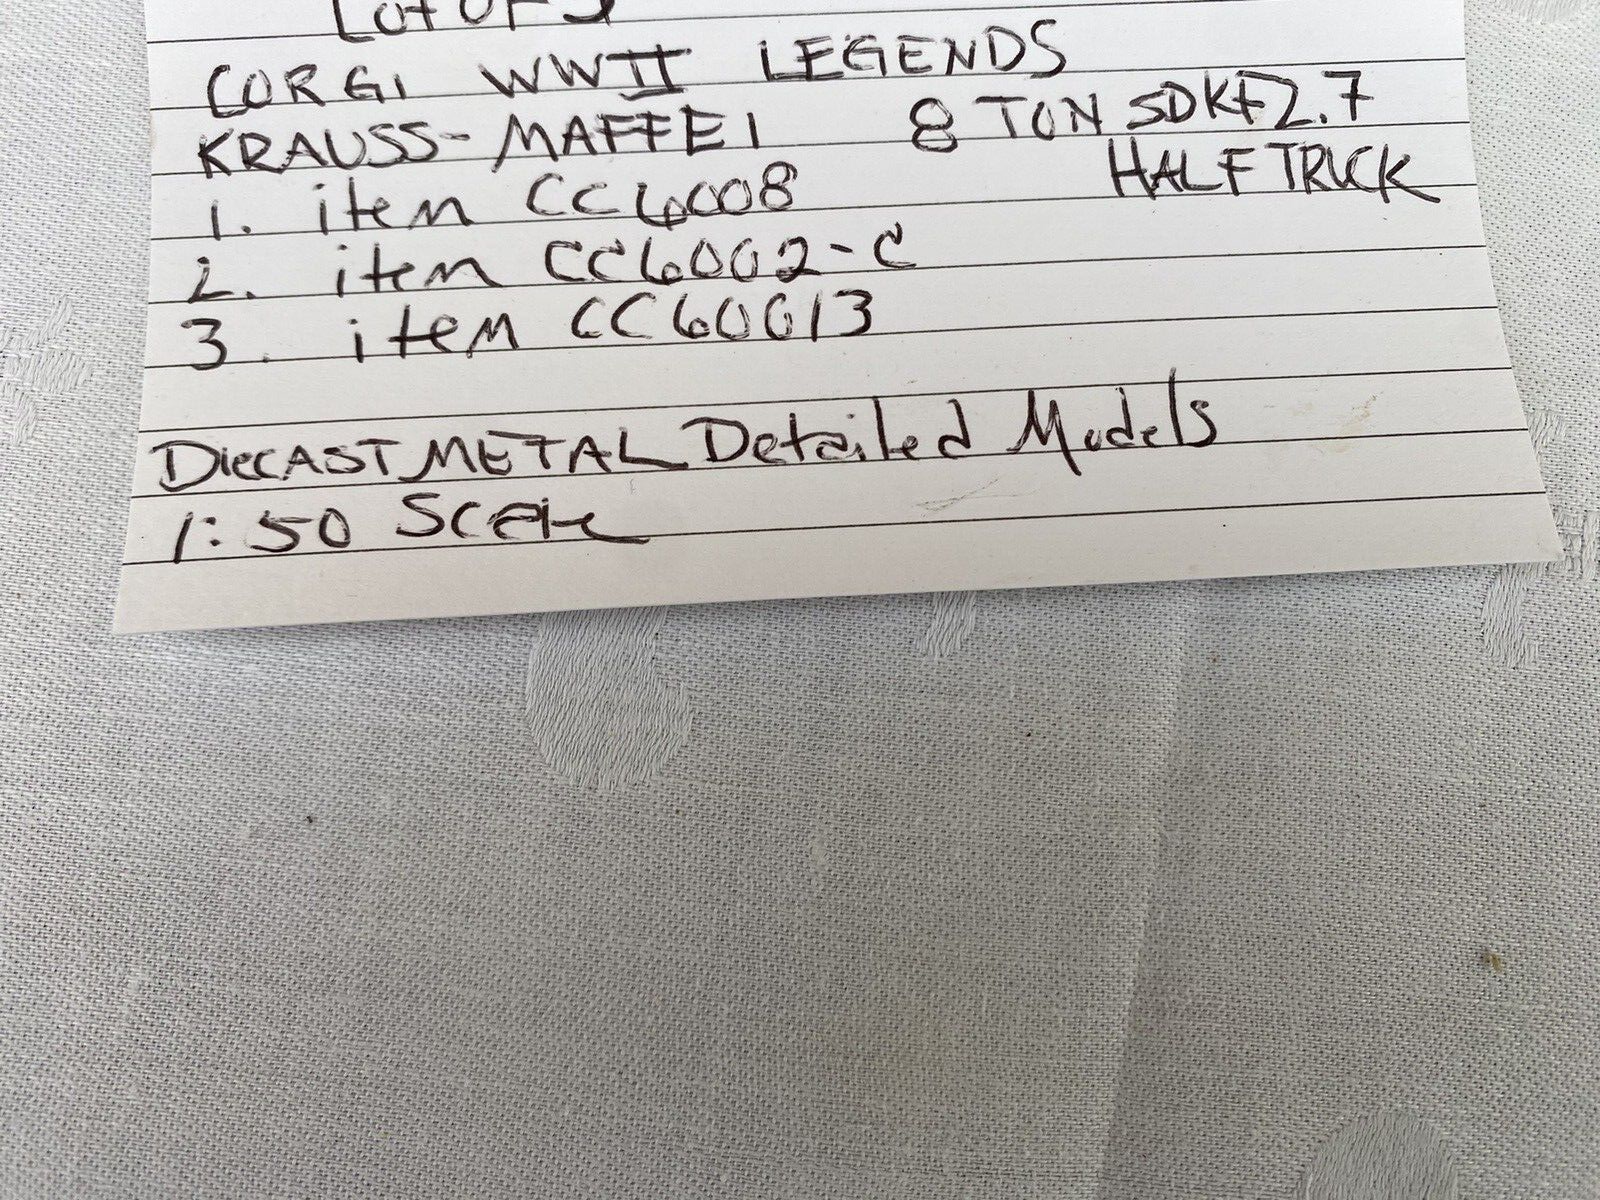 Lot OF 3
CORGI WWII LEGENDS
KRAUSS-MAFFEI 8 TON SDKFZ.7
HALF TRUCK
1. item CC6008
2. item CC6002-C
3. item CC60013
DIECAST METAL Detailed Models
1:50 Scale